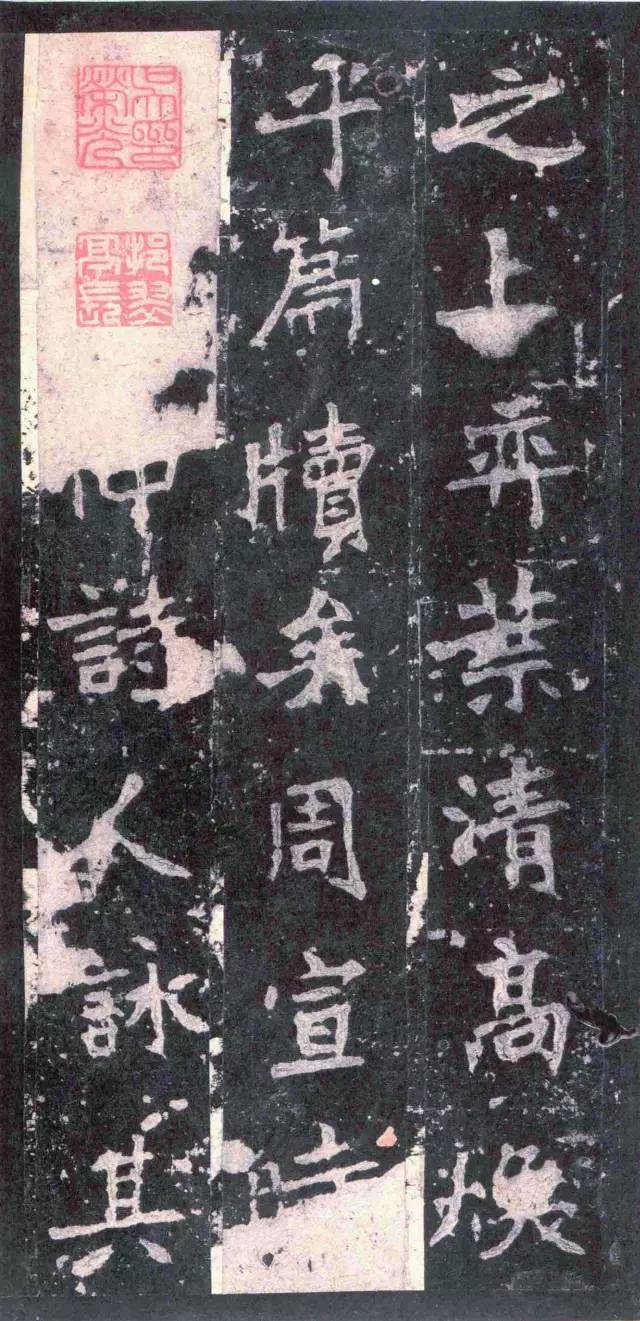 之上弈葉清高煥
乎篇牘矣周宣時
仲詩人詠其